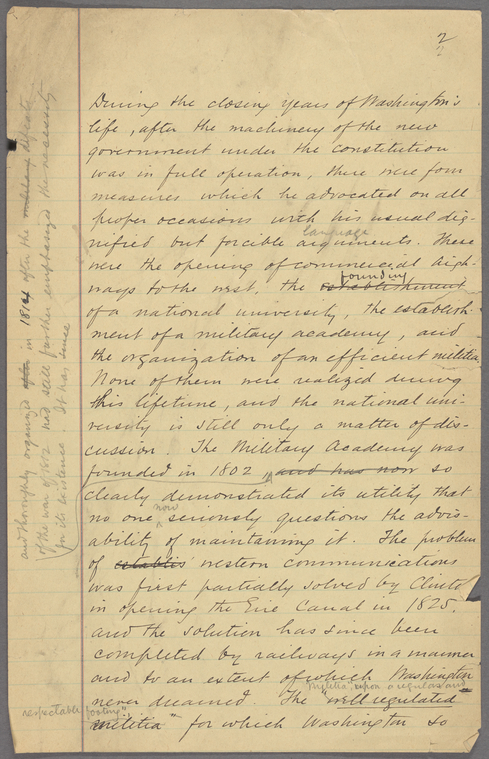 2
2
During the closing years of Washington's
life, after the machinery of the new
government under the constitution
was in full operation, there were four
measures which he advocated on all
proper occasions with his usual dig-
language
nified but forcible arguments. These
were the opening of commercial high-
founding
ways to the west, the establishment
of a national university, the establish-
ment of a military academy, and
the organization of an efficient militia.
None of them were realized during
this lifetime, and the national uni-
versity is still only a matter of dis-
cussion. The Military Academy was
founded in 1802, and has now so
clearly demonstrated its utility that
now
no one seriously questions the advis-
ability of maintaining it. The problem
of establis western communications
was first partially solved by Clinto
in opening the Erie Canal in 1825,
and the solution has since been
completed by railways in a manner
and to an extent of which Washington
militia, upon a regular and
never dreamed. The "well regulated
respectable footing".
militia" for which Washington so
and thoroughly organized after in 1814 after the military defeats
of the war of 1812 had still further emphasized the necessity
for its existence. It has since